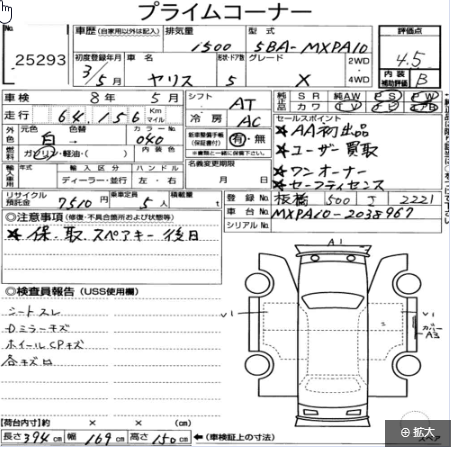 プライムコーナー
No.
25293
車歴 (自家用以外は記入) 排気量 型式
1500 5BA-MXPA10
初度登録年月 車名 形状・ドア数 グレード 2WD・4WD
3/5 ヤリス 5 X
評価点
4.5
内装補助評価 B
車検 8年 5月
走行 64,156 Km マイル
シフト AT
冷房 AC
外色 元色 色替 カラーNo. 内装色
白 → 040
燃料 ガソリン・軽油・( )
輸入車用 年式 輸入車 ハンドル
ディーラー・並行 左・右
リサイクル預託金 7510円 乗車定員 5人 積載量 t
有・無
名義変更期限
月 日
純正 SR 純AW PS PW
カワ TV
セールスポイント
★AA初出品
★ユーザー買取
★ワンオーナー
★セーフティセンス
登録No. 板橋 500 す 2221
車台No. MXPA10-2038967
シリアルNo.
◎注意事項 (修復・不具合箇所および状態等)
★保、取、スペアキー 後日
◎検査員報告 (USS使用欄)
シートスレ
Dミラーキズ
ホイールCPキズ
各キズ凹
A1
V1
V1
カバー
A3
【荷台内寸】約 × × cm
長さ394cm 幅169cm 高さ150cm ←(車検証上の寸法)
スペア
拡大